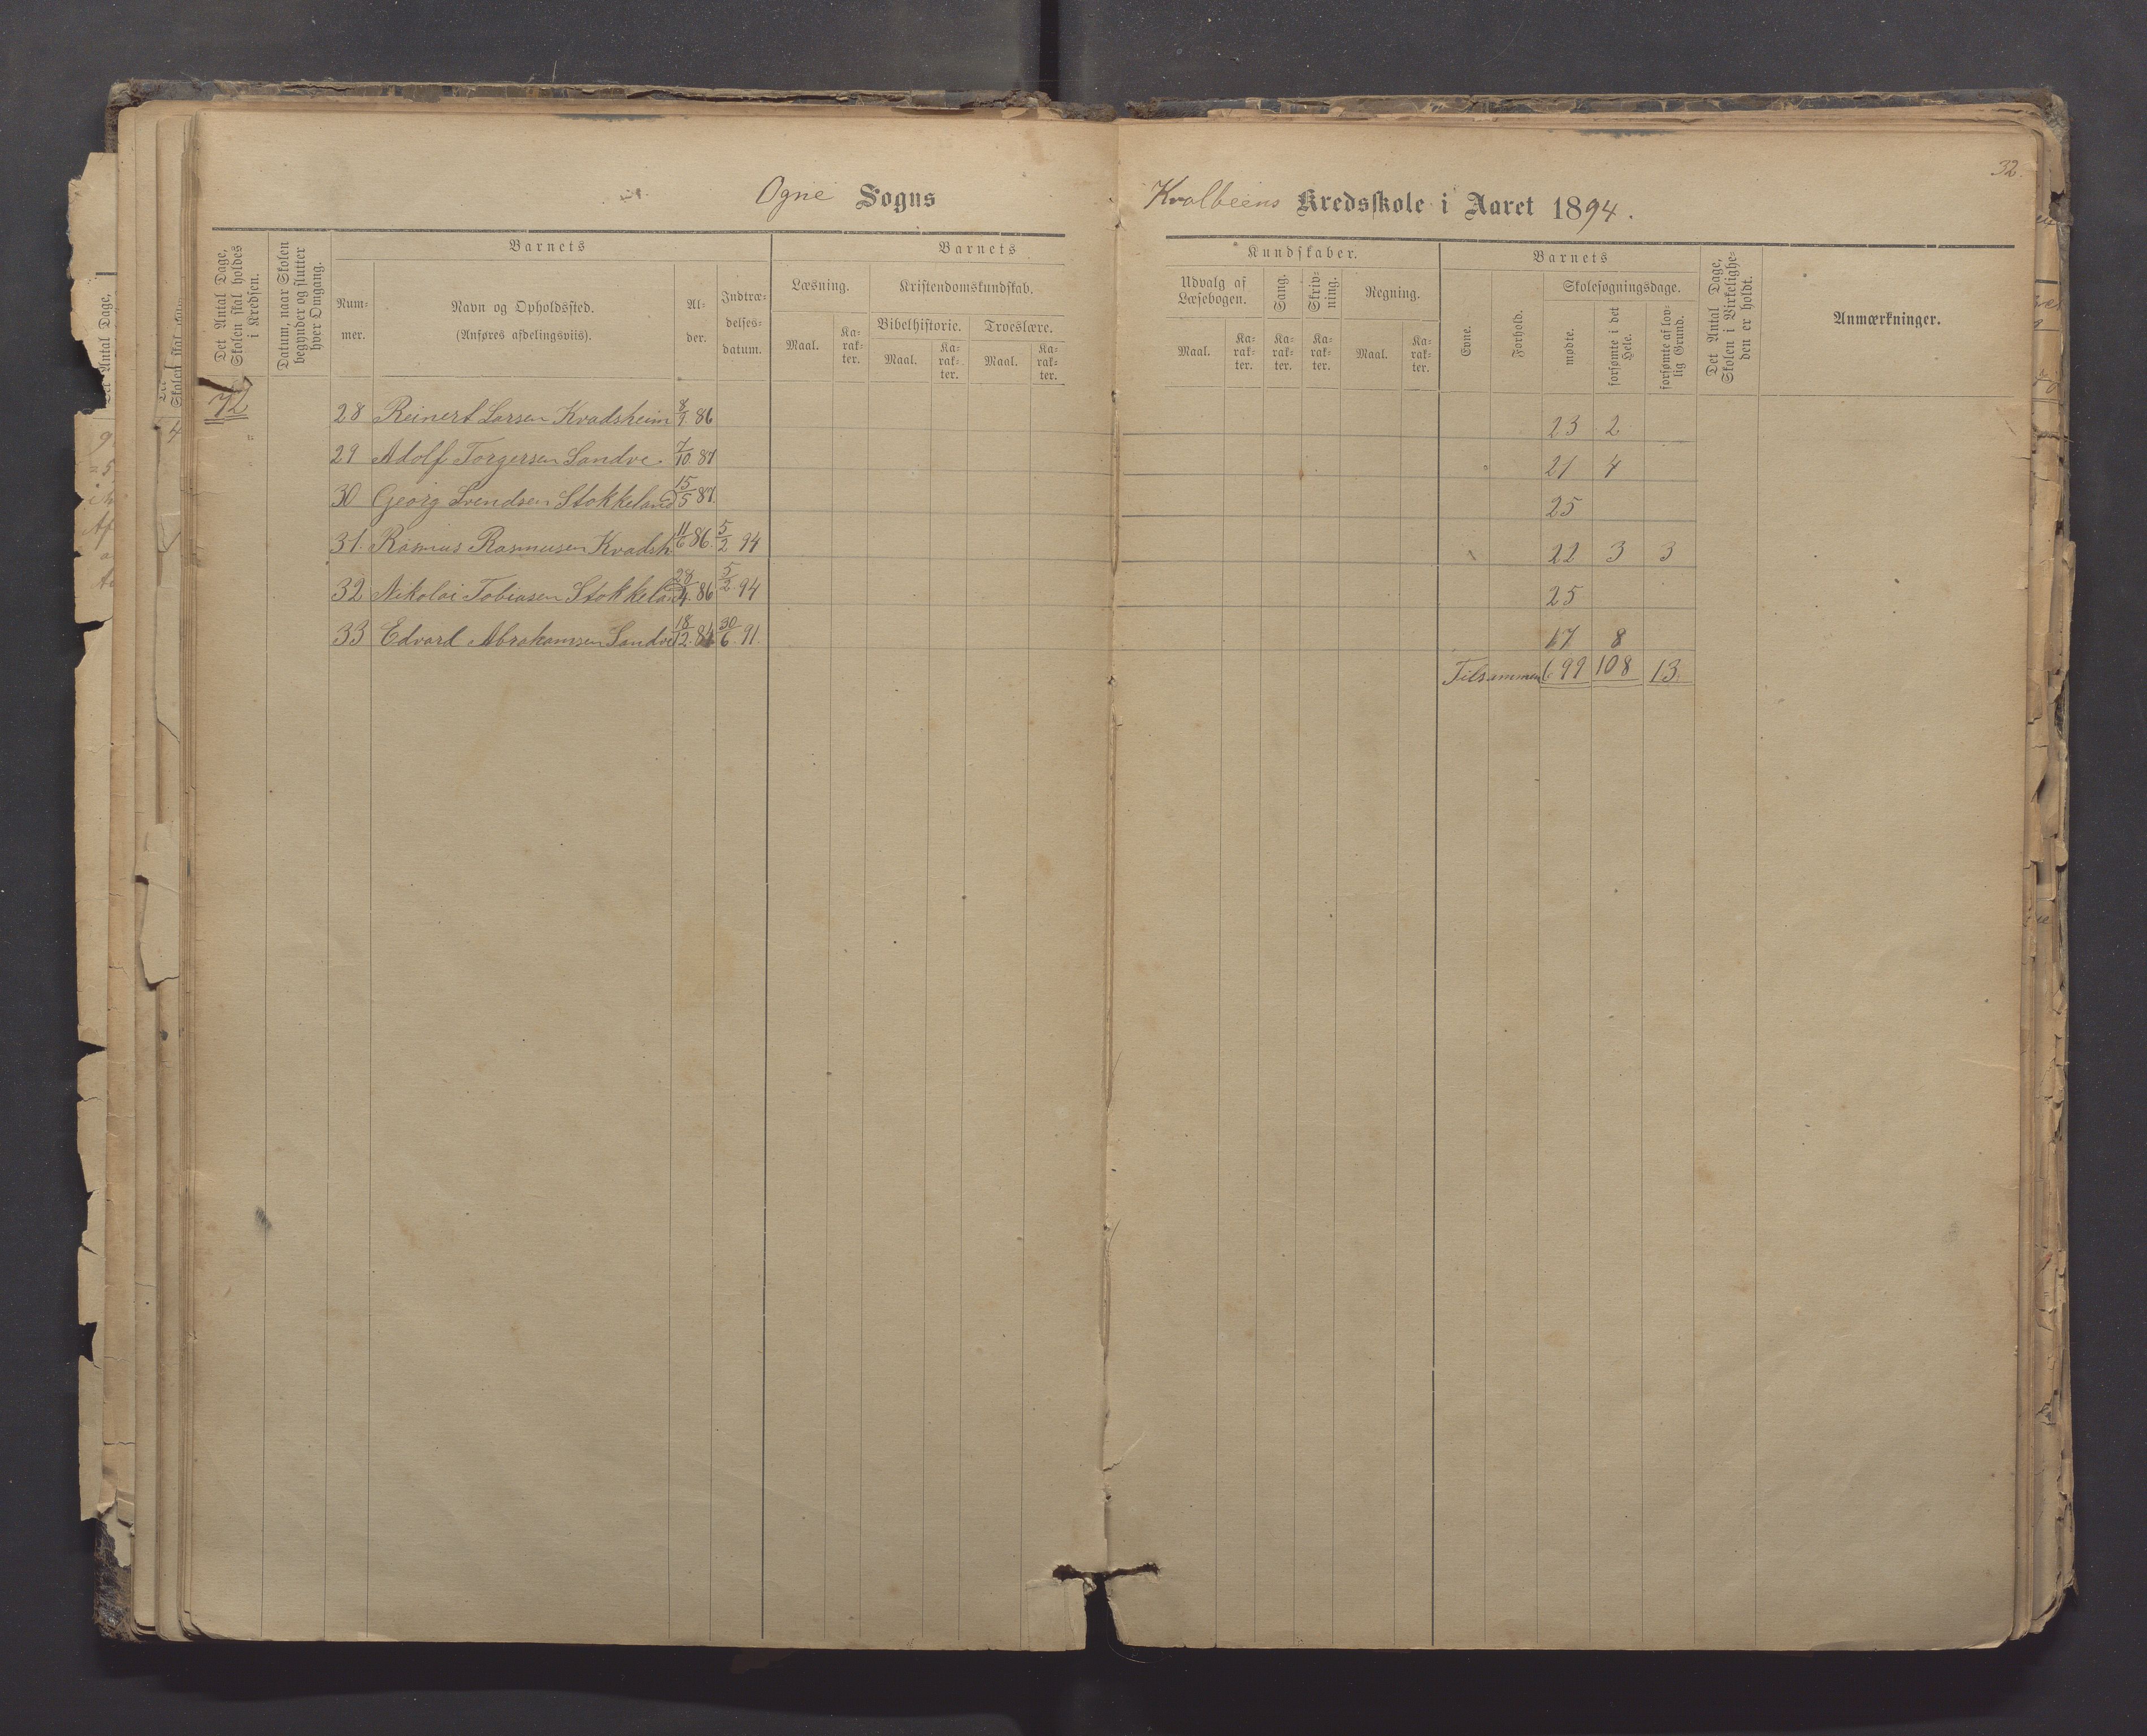 32.
Ogne Sogns
Kvalbeens Kredsskole i Aaret 1894.
Det Antal Dage, Skolen skal holdes i Kredsen.
Datum, naar Skolen begynder og slutter hver Omgang.
Barnets
Num-
mer.
Navn og Opholdssted.
(Anføres afdelingsviis).
Al-
der.
Indtræ-
delses-
datum.
Barnets
Læsning.
Kristendomskundskab.
Bibelhistorie.
Troeslære.
Maal.
Ka-
rak-
ter.
Maal.
Ka-
rak-
ter.
Maal.
Ka-
rak-
ter.
Kundskaber.
Udvalg af
Læsebogen.
Sang.
Skriv-
ning.
Regning.
Maal.
Ka-
rak-
ter.
Ka-
rak-
ter.
Ka-
rak-
ter.
Maal.
Ka-
rak-
ter.
Barnets
Evne.
Forhold.
Skolesøgningsdage.
mødte.
forsømte i det
Hele.
forsømte af lov-
lig Grund.
Det Antal Dage,
Skolen i Virkelighe-
den er holdt.
Anmærkninger.
72
28 Reinert Larsen Kvadsheim 8/9. 86 23 2
29 Adolf Torgersen Sandve 7/10 87 21 4
30 Georg Svendsen Stokkeland 15/5 87. 25
31. Rasmus Rasmusen Kvadsh 11/6 86. 5/2 94 22 3 3
32 Nikolai Tobiasen Stokkeland 28/4. 86 5/2. 94 25
33 Edvard Abrahamsen Sandve 18/12. 84 30/6. 91. 17 8
Tilsammen 699 108 13.